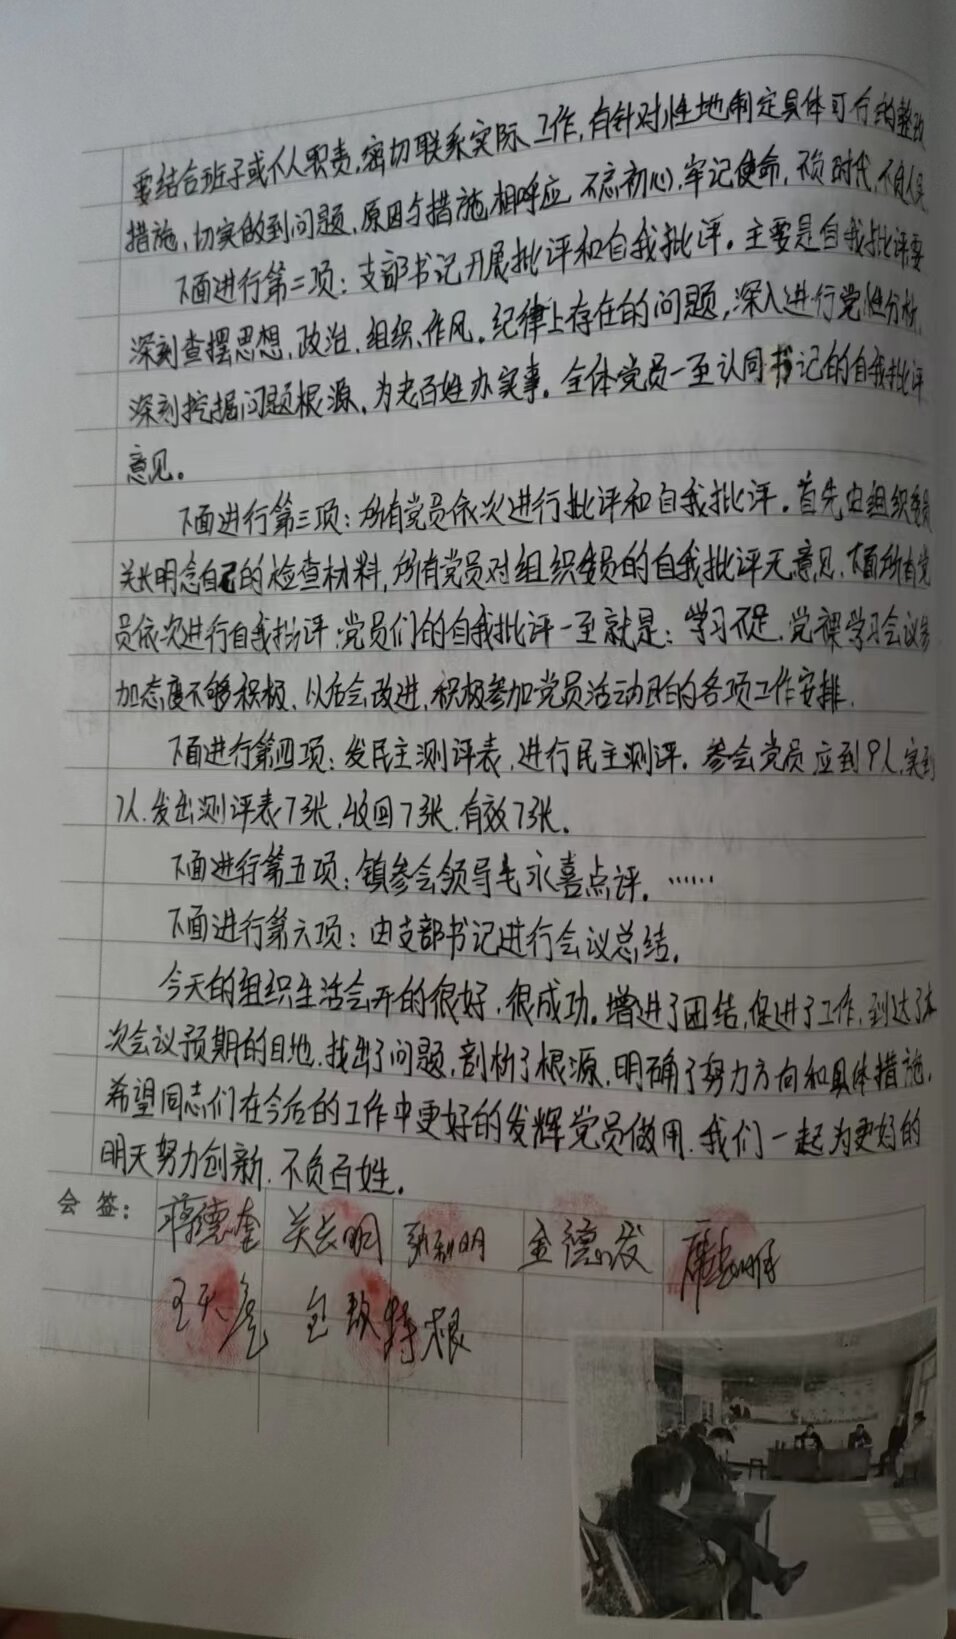 要结合班子或个人职责,密切联系实际工作,有针对性地制定具体可行的整改
措施,切实做到问题、原因与措施相呼应,不忘初心,牢记使命,不负时代,不负人民
下面进行第二项:支部书记开展批评和自我批评。主要是自我批评要
深刻查摆思想、政治、组织、作风、纪律上存在的问题,深入进行党性分析,
深刻挖掘问题根源,为老百姓办实事。全体党员一至认同书记的自我批评
意见。
下面进行第三项:所有党员依次进行批评和自我批评。首先由组织委员
关长明念自己的检查材料,所有党员对组织委员的自我批评无意见,下面所有党
员依次进行自我批评:党员们的自我批评一至就是:学习不足,党课学习会议参
加态度不够积极,以后会改进,积极参加党员活动日的各项工作安排.
下面进行第四项:发民主测评表,进行民主测评.参会党员应到9人,实到
7人.发出测评表7张,收回7张,有效7张。
下面进行第五项:镇参会领导毛永喜点评。……
下面进行第六项:由支部书记进行会议总结。
今天的组织生活会开的很好,很成功。增进了团结,促进了工作,到达了本
次会议预期的目地.找出了问题,剖析了根源,明确了努力方向和具体措施,
希望同志们在今后的工作中更好的发辉党员做用.我们一起为更好的
明天努力创新,不负百姓。
会签: 蒋德奎 关长明 金德发
特根